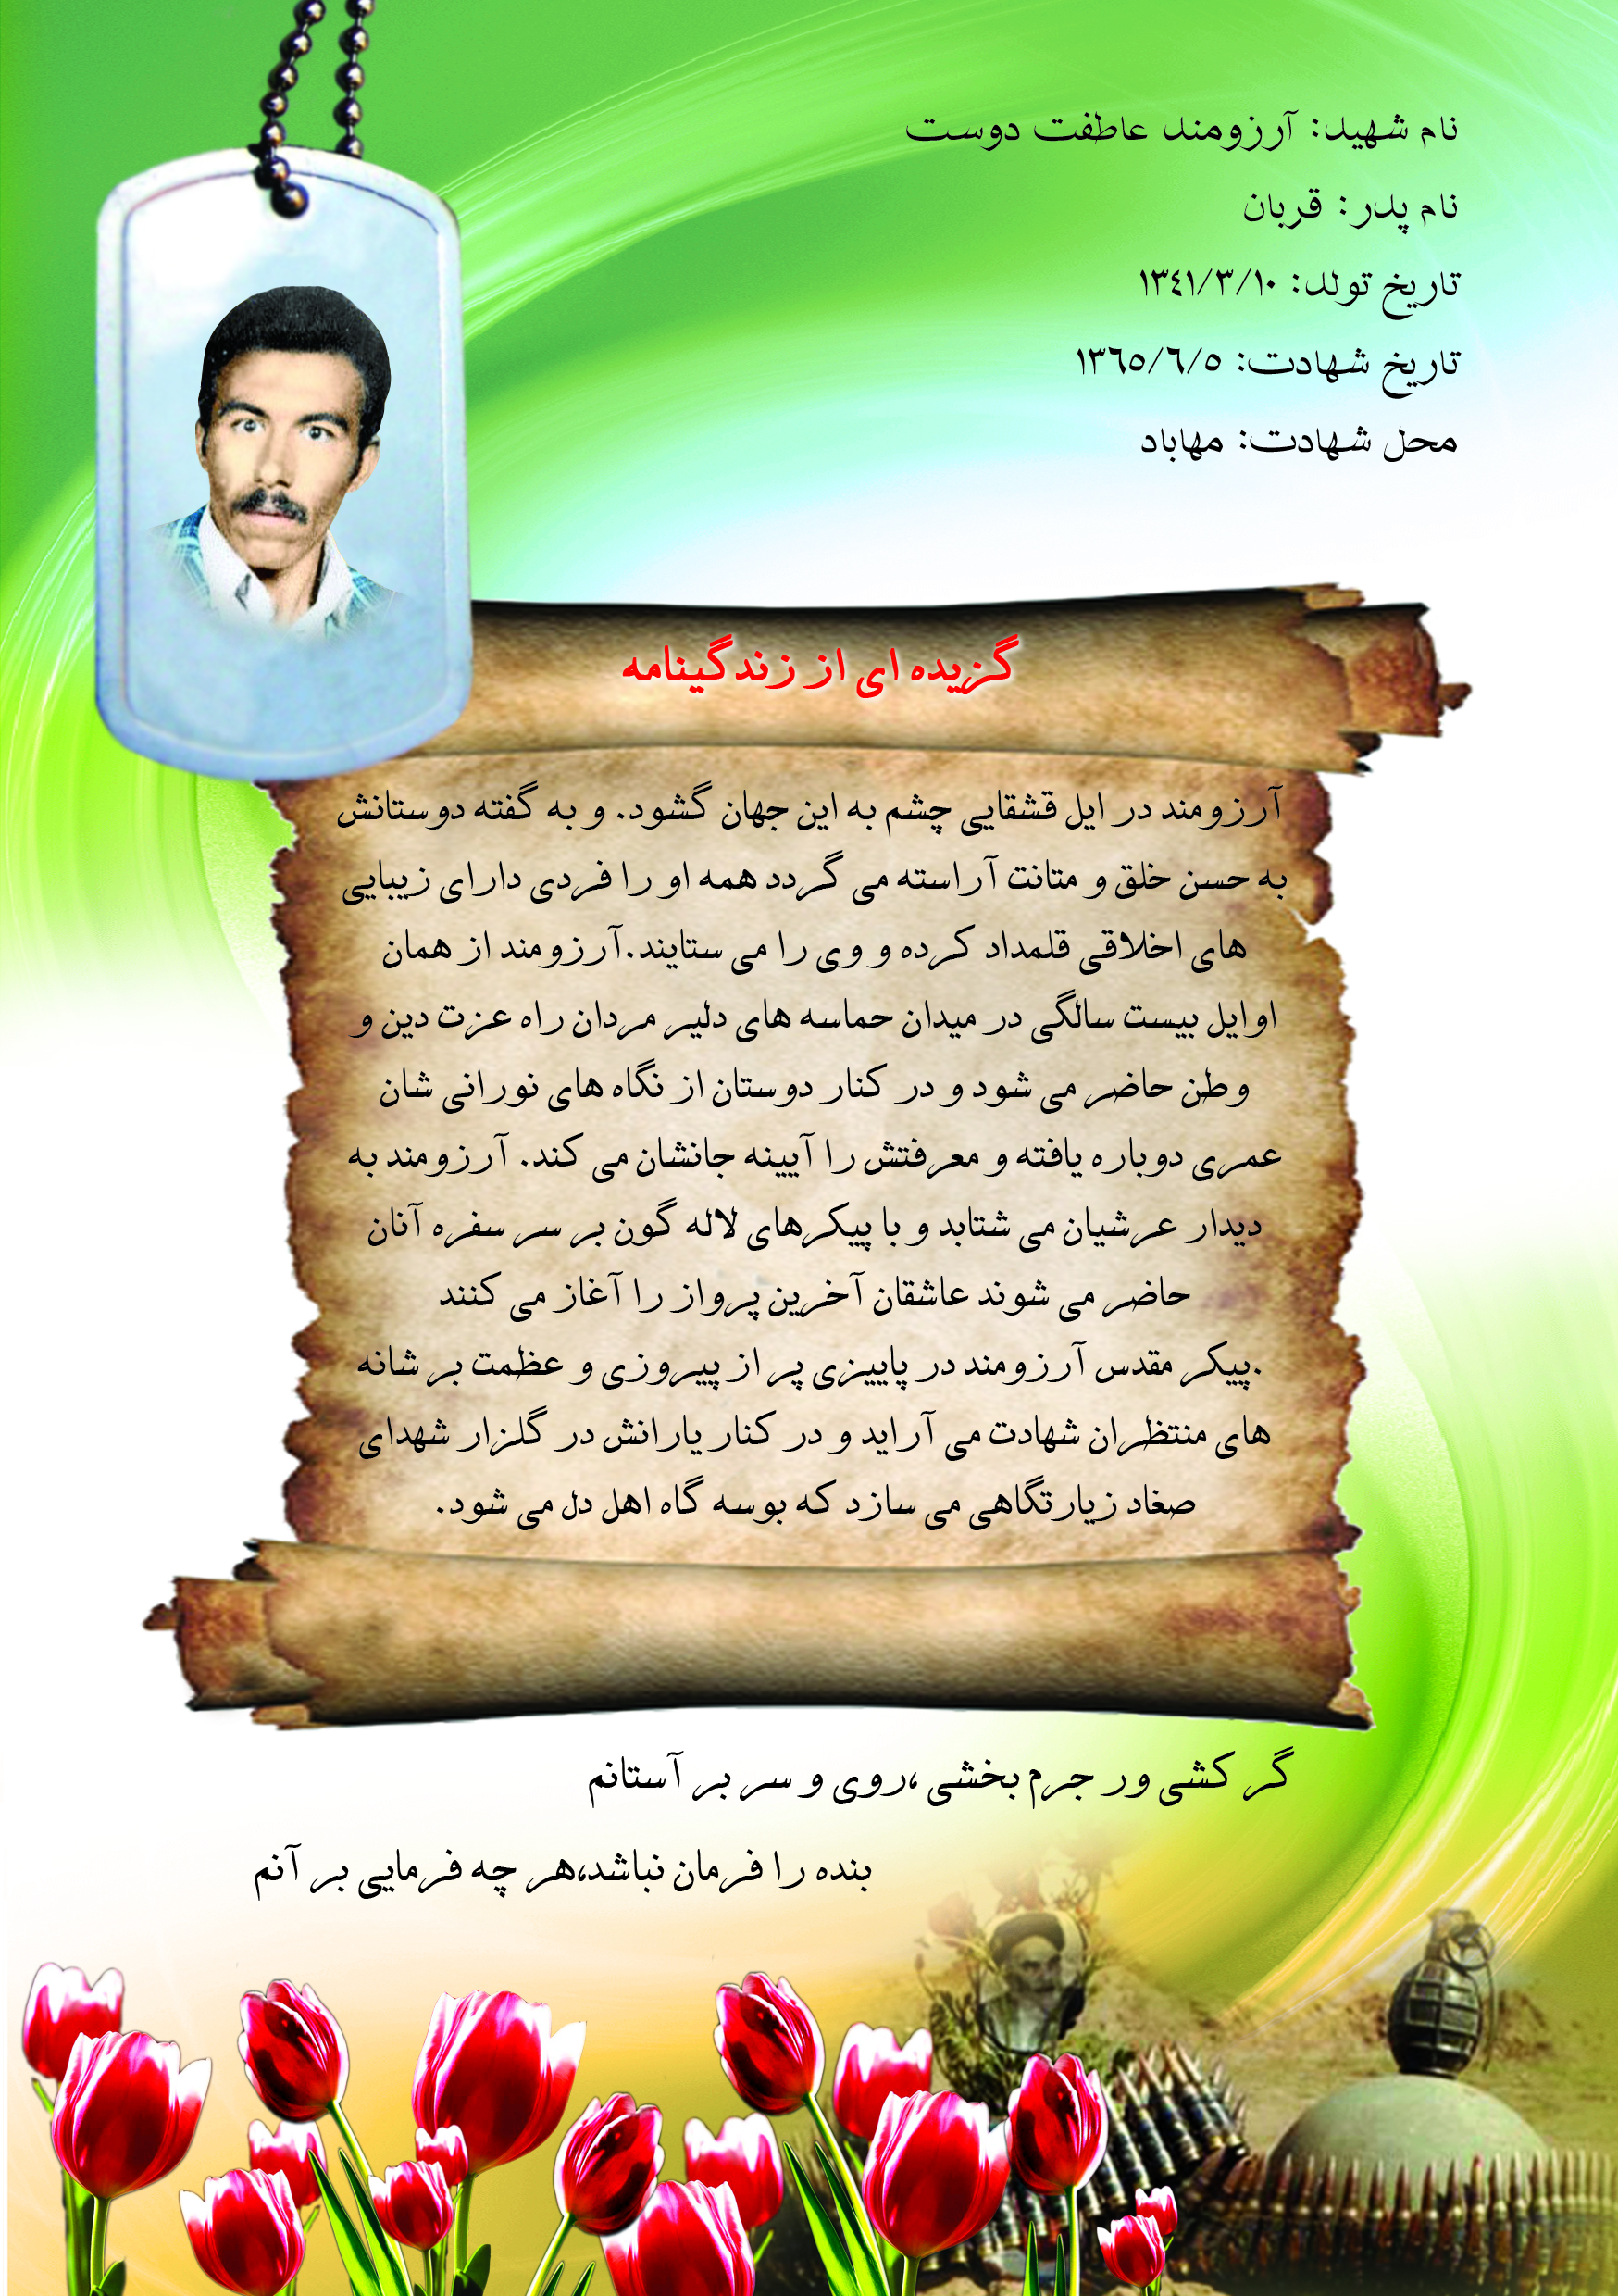 نام شهید: آرزومند عاطفت دوست
نام پدر: قربان
تاریخ تولد: ۱۳٤۱/۳/۱۰
تاریخ شهادت: ۱۳٦٥/٦/٥
محل شهادت: مهاباد
گزیده ای از زندگینامه
آرزومند در ایل قشقایی چشم به این جهان گشود. و به گفته دوستانش
به حسن خلق و متانت آراسته می گردد همه او را فردی دارای زیبایی
های اخلاقی قلمداد کرده و وی را می ستایند.آرزومند از همان
اوایل بیست سالگی در میدان حماسه های دلیر مردان راه عزت دین و
وطن حاضر می شود و در کنار دوستان از نگاه های نورانی شان
عمری دوباره یافته و معرفتش را آیینه جانشان می کند. آرزومند به
دیدار عرشیان می شتابد و با پیکرهای لاله گون بر سر سفره آنان
حاضر می شوند عاشقان آخرین پرواز را آغاز می کنند
.پیکر مقدس آرزومند در پاییزی پر از پیروزی و عظمت بر شانه
های منتظران شهادت می آراید و در کنار یارانش در گلزار شهدای
صغاد زیارتگاهی می سازد که بوسه گاه اهل دل می شود.
گر کشی ور جرم بخشی ،روی و سر بر آستانم
بنده را فرمان نباشد،هر چه فرمایی بر آنم